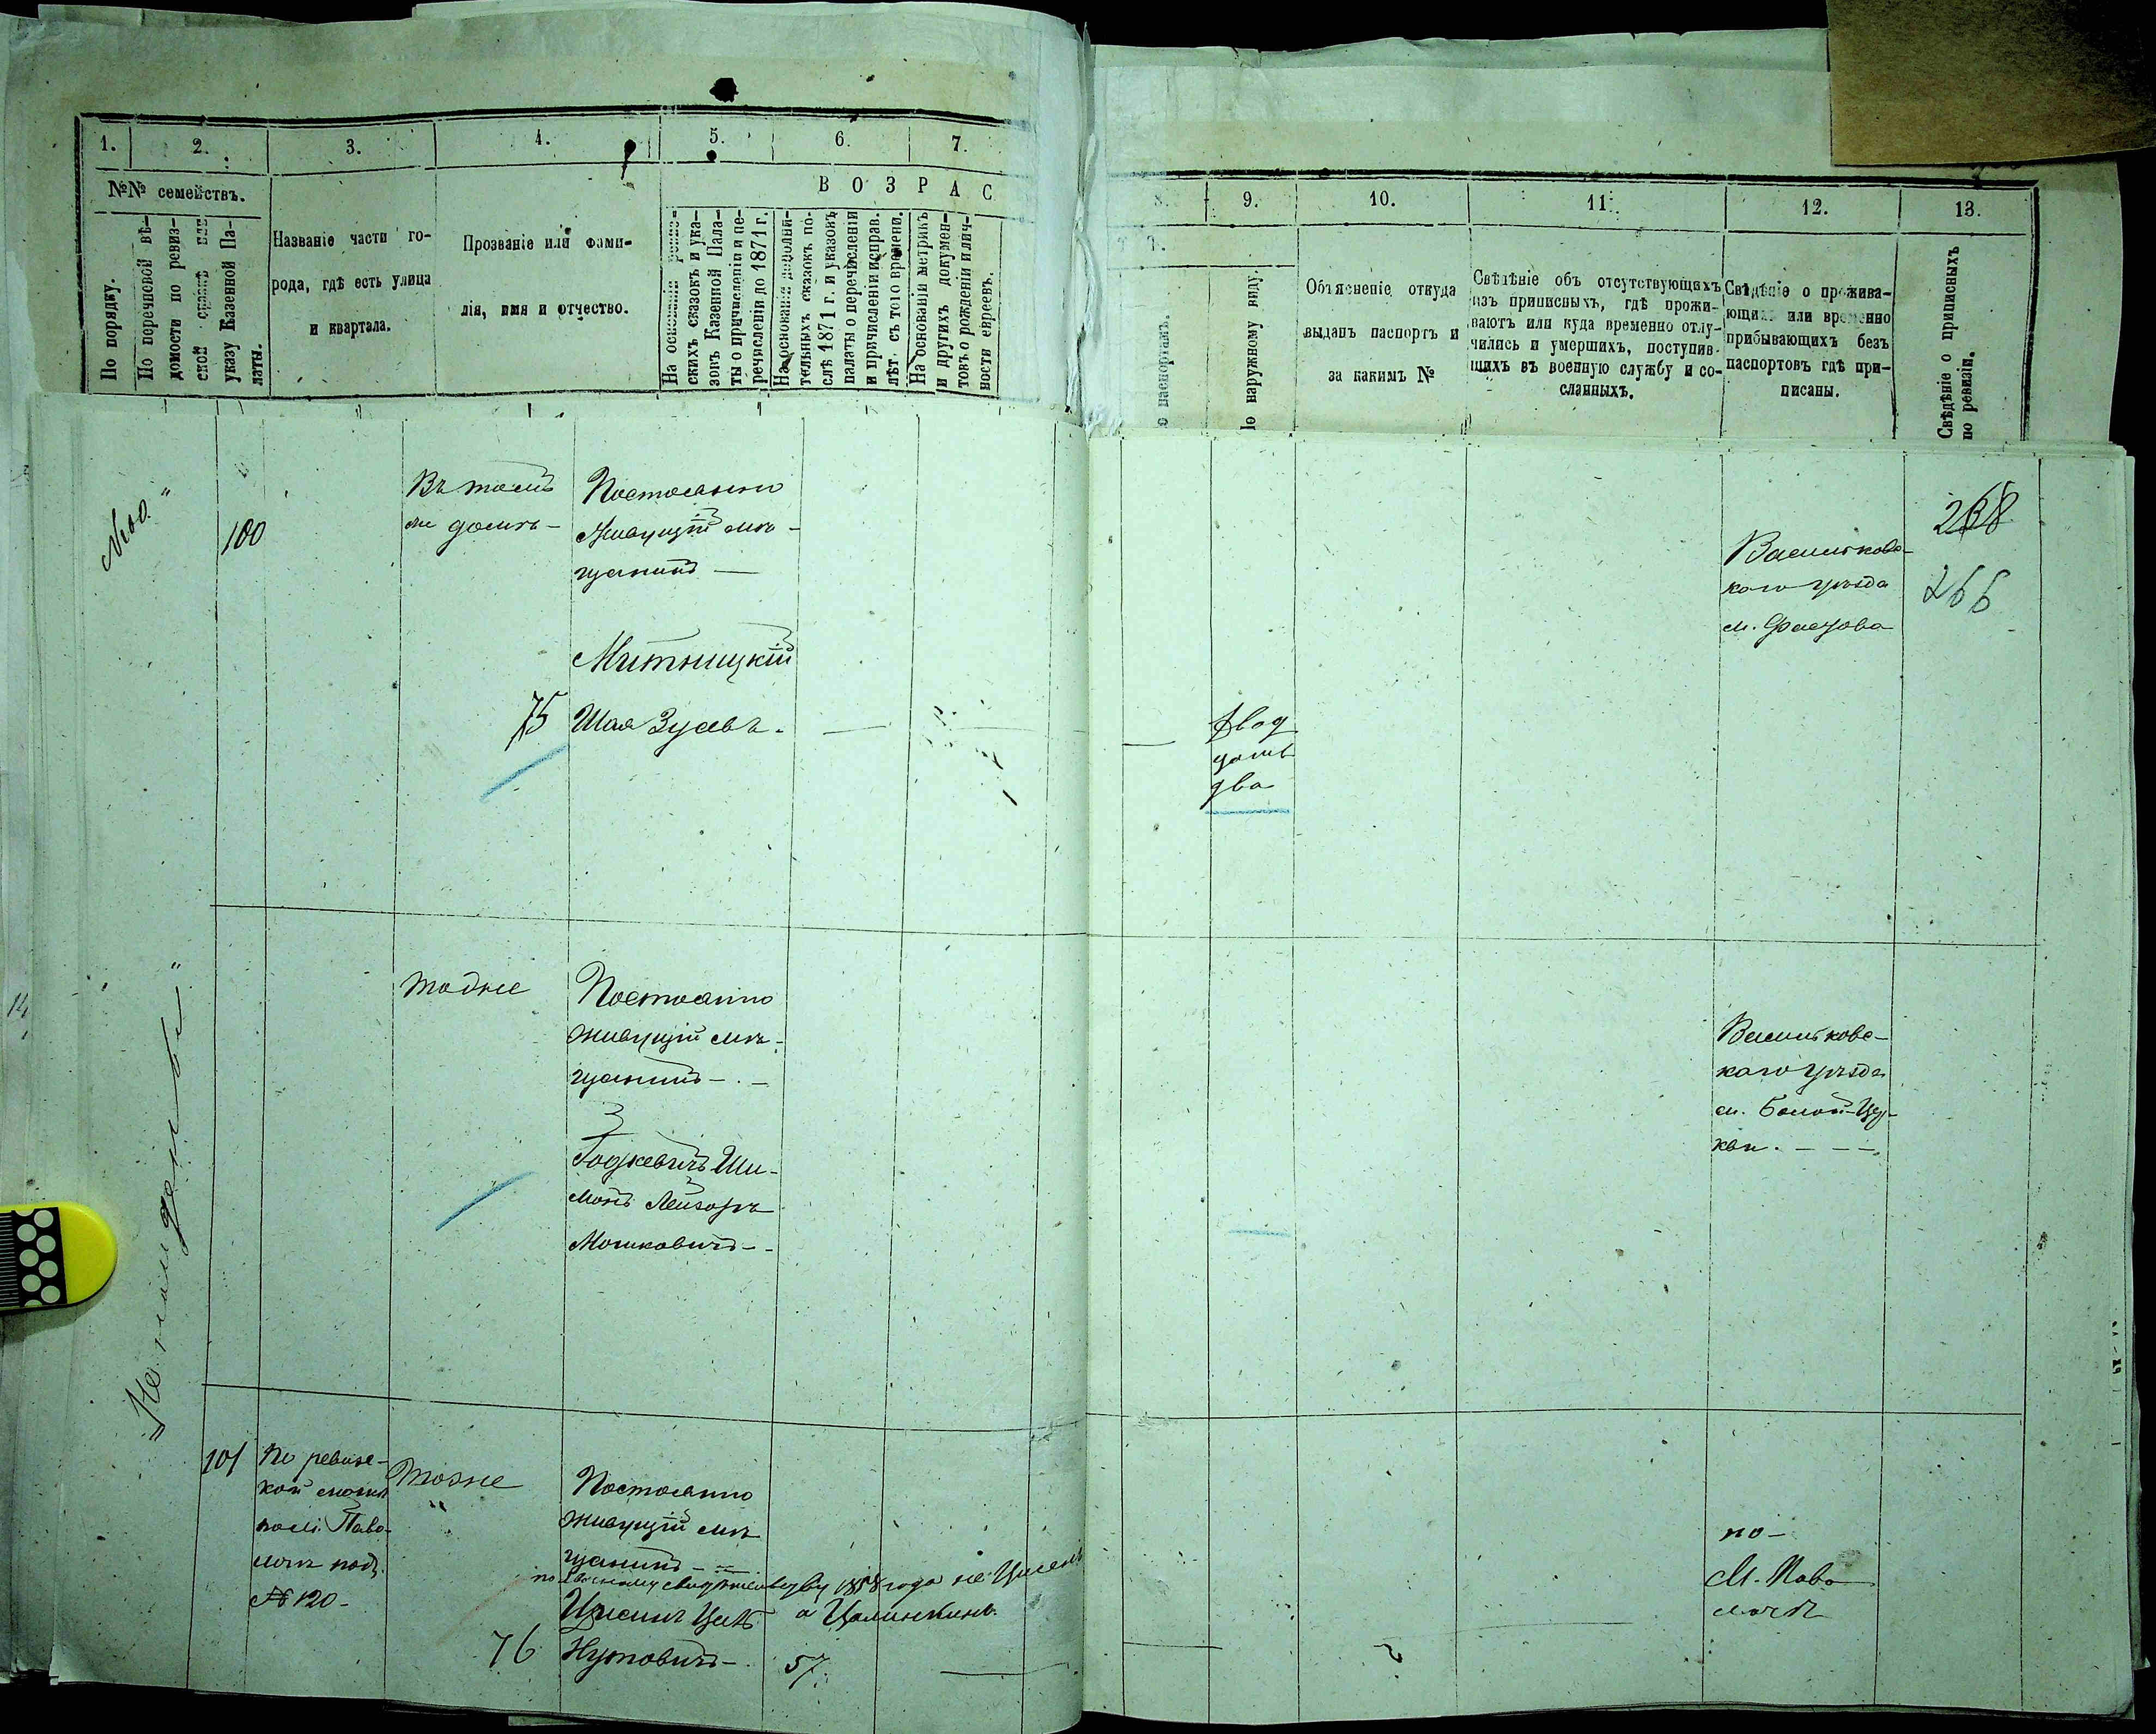 1.
2.
3.
4.
5.
6.
7.
№№ семействъ.
В О З Р А С
По порядку.
По перечневой вѣ-
домости по ревиз-
ской сказкѣ или
указу Казенной Па-
латы.
Названіе части го-
рода, гдѣ есть улица
и квартала.
Прозваніе или фами-
лія, имя и отчество.
На основаніи ревиз-
скихъ сказокъ и ука-
зовъ Казенной Пала-
ты о причисленіи и пе-
речисленіи до 1871 г.
На основаніи дополни-
тельныхъ сказокъ по-
слѣ 1871 г. и указовъ
палаты о перечисленіи
и причисленіи исправ.
лѣт. съ того времени.
На основаніи метрикъ
и другихъ докумен-
товъ о рожденіи и лич-
ности евреевъ.
№100."
100
Въ томъ
же домѣ-
Постоянно
живущій мѣ-
щанинъ —
Митницкій
75 Шая Зусевъ.
тоже
Постоянно
живущій мѣ-
щанинъ —
Ши-
монъ Лейзоръ
Мошковичъ-
101
По ревизс-
кой
№ 120-
тоже
"
Постоянно
живущій мѣ
щанинъ
1858 года не
а
76
Нутовичъ-
57.
14
9.
10.
11.
12.
13.
по паспортамъ.
По наружному виду.
Объясненіе откуда
выданъ паспортъ и
за какимъ №
Свѣдѣніе объ отсутствующихъ
изъ приписныхъ, гдѣ прожи-
ваютъ или куда временно отлу-
чились и умершихъ, поступив-
шихъ въ военную службу и со-
сланныхъ.
Свѣдѣніе о прожива-
ющихъ или временно
прибывающихъ безъ
паспортовъ гдѣ при-
писаны.
Свѣдѣніе о приписныхъ
по ревизіи.
268
266
Васильковс-
каго уѣзда
м. Фастова
двад
цать
два
Васильковс-
каго уѣзда
м. Бѣлой-Цер-
кви. - - -
по-
М. Паво
лочѣ